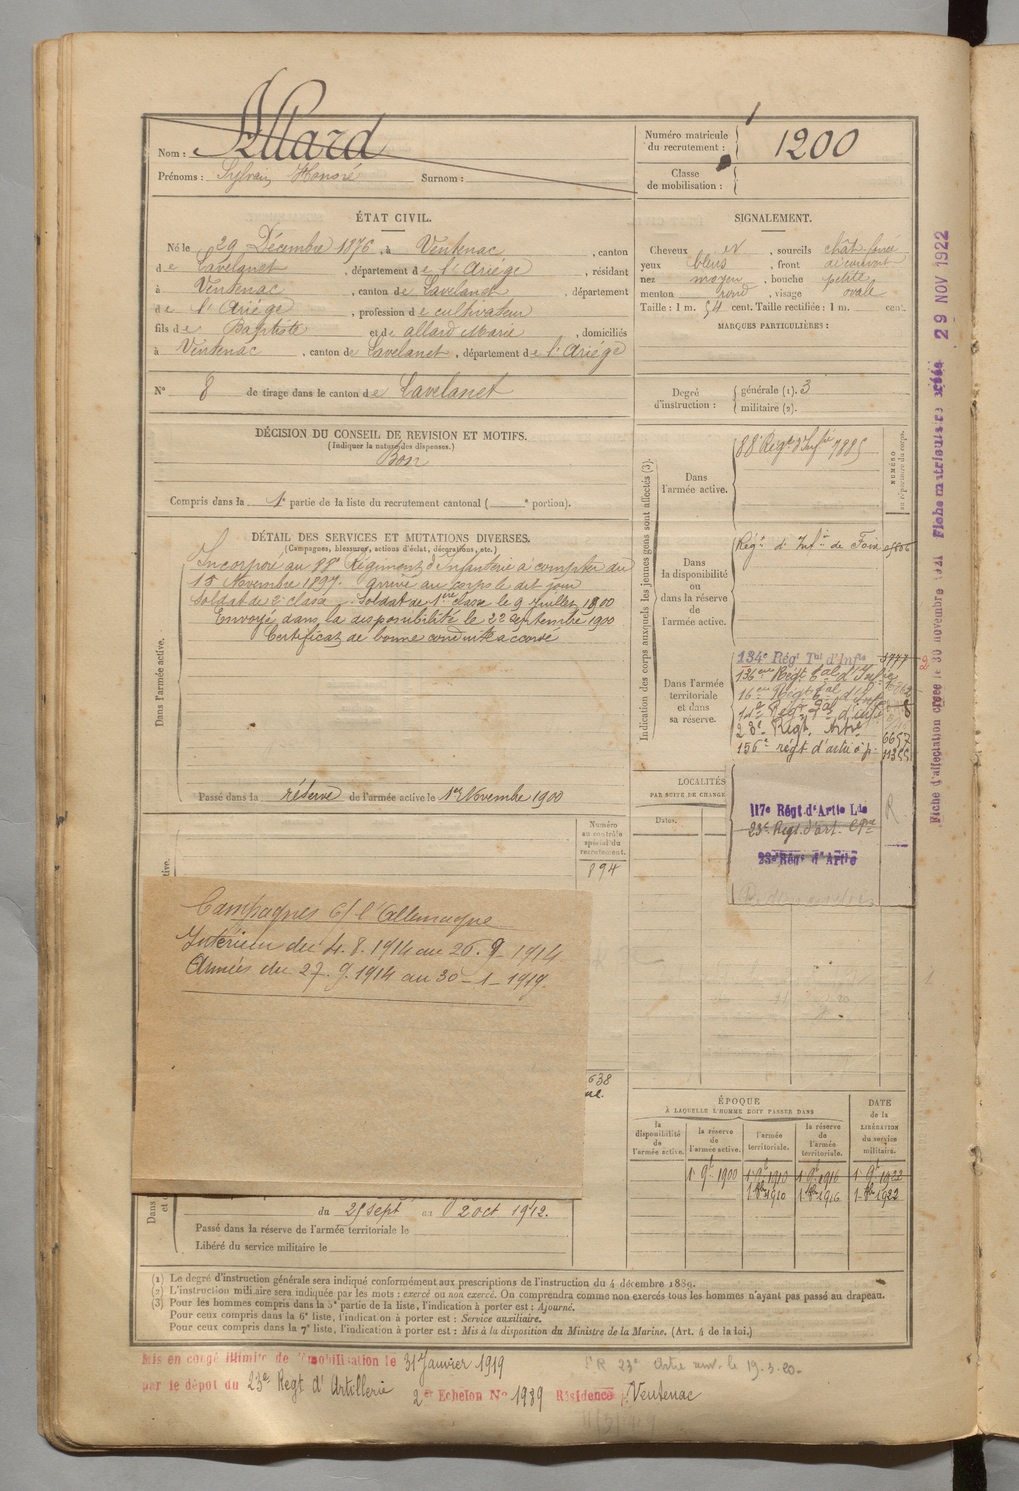 Nom : Allard
Prénoms : Sylvain Honoré Surnom :
Numéro matricule
du recrutement : 1200
Classe
de mobilisation :
ÉTAT CIVIL.
Né le 29 Décembre 1876, à Ventenac, canton
de Lavelanet, département de l'Ariège, résidant
à Ventenac, canton de Lavelanet, département
de l'Ariège, profession de cultivateur
fils de Baptiste et de allard Marie, domiciliés
à Ventenac, canton de Lavelanet, département de l'Ariége
SIGNALEMENT.
Cheveux et, sourcils chât. foncé
yeux bleus, front découvert
nez moyen, bouche petite
menton rond, visage ovale
Taille : 1 m. 54 cent. Taille rectifiée : 1 m. cent.
MARQUES PARTICULIÈRES :
N° 8 de tirage dans le canton de Lavelanet
Degré
d'instruction :
générale (1). 3
militaire (2).
DÉCISION DU CONSEIL DE REVISION ET MOTIFS.
(Indiquer la nature des dispenses.)
Bon
Compris dans la 1e partie de la liste du recrutement cantonal ( e portion).
DÉTAIL DES SERVICES ET MUTATIONS DIVERSES.
(Campagnes, blessures, actions d'éclat, décorations, etc.)
Dans l'armée active.
Incorporé au 88e Régiment d'Infanterie à compter du
15 Novembre 1897. arrivé au corps le dit jour
soldat de 2e classe. Soldat de 1ère classe le 9 Juillet 1900
Envoyé dans la disponibilité le 22 septembre 1900
Certificat de bonne conduite accordé
Passé dans la réserve de l'armée active le 1er Novembre 1900
Indication des corps auxquels les jeunes gens sont affectés (3).
NUMÉRO
au répertoire du corps.
Dans
l'armée active.
88e Regt d'Infie 7885
Dans
la disponibilité
ou
dans la réserve
de
l'armée active.
Régt d'Infie de Foix
Dans l'armée
territoriale
et dans
sa réserve.
134e Régt Tal d'Infie 5777
136ème Régt Tal d'Infie
16ème Régt Tal d'Infie
14e Regt Tal d'infie
28e Régt. Artie 6657
156e régt d'artie à p. 11355
LOCALITÉS
PAR SUITE DE CHANGE
Dates.
117e Régt d'Artie Lde
23e Regt d'art. Cgne
23e Régt d'Artie
R
Numéro
au contrôle
spécial du
recrutement.
894
Campagnes c/ l'Allemagne
Intérieur du 4. 8. 1914 au 26. 9 1914
Armées du 27. 9. 1914 au 30-1-1919.
638
du 25 sept au 02 oct 1912.
Passé dans la réserve de l'armée territoriale le
Libéré du service militaire le
ÉPOQUE
À LAQUELLE L'HOMME DOIT PASSER DANS
la
disponibilité
de
l'armée active.
la réserve
de
l'armée active.
l'armée
territoriale.
la réserve
de
l'armée
territoriale.
DATE
de la
LIBÉRATION
du service
militaire.
1r 9bre 1900 1r 9bre 1910 1r 9bre 1916 1r 9bre 1922
1r 8bre 1910 1r 8bre 1916 1r 8bre 1922
(1) Le degré d'instruction générale sera indiqué conformément aux prescriptions de l'instruction du 4 décembre 1889.
(2) L'instruction militaire sera indiquée par les mots : exercé ou non exercé. On comprendra comme non exercés tous les hommes n'ayant pas passé au drapeau.
(3) Pour les hommes compris dans la 5e partie de la liste, l'indication à porter est : Ajourné.
Pour ceux compris dans la 6e liste, l'indication à porter est : Service auxiliaire.
Pour ceux compris dans la 7e liste, l'indication à porter est : Mis à la disposition du Ministre de la Marine. (Art. 4 de la loi.)
Mis en congé illimité de démobilisation le 31 Janvier 1919
par le dépôt du 23e Regt d'Artillerie 2e Echelon No 1989 Résidence Ventenac
P R 23e Artie 19-3-20-
Fiche d'affectation créée le 30 novembre 1921 Fiche matriculaire créée 29 NOV 1922